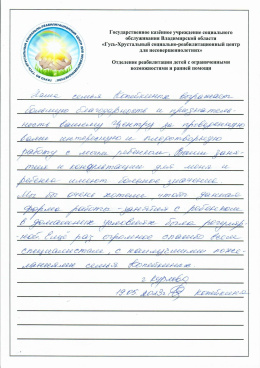 Государственное казённое учреждение социального
обслуживания Владимирской области
«Гусь-Хрустальный социально-реабилитационный центр
для несовершеннолетних»
Отделение реабилитации детей с ограниченными
возможностями и ранней помощи
Наша семья выражает
большую благодарность и признатель-
ность вашему Центру за проведенную
вами интересную и плодотворную
работу с моим ребенком. Ваши заня-
тия и консультации для меня и
ребенка имеют большое значение
Мы бы очень хотели чтобы данная
форма работы занятия с ребенком
в домашних условиях была регуляр
ной. Ещё раз огромное спасибо всем
специалистам, с наилучшими поже-
ланиями семья
г. Курлово